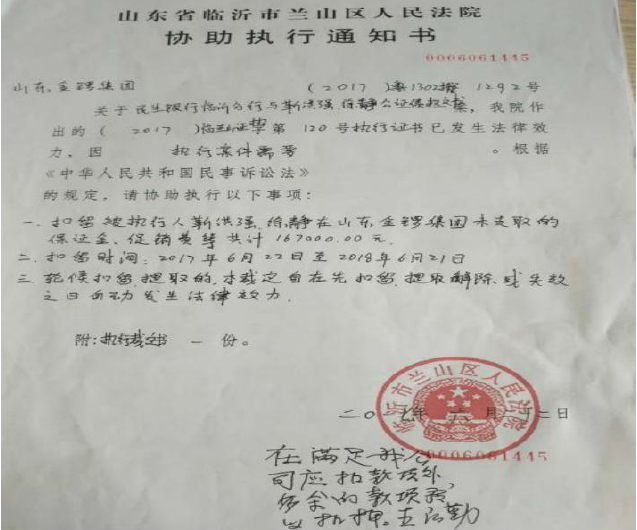 山东省临沂市兰山区人民法院
协助执行通知书
0006061445
山东金锣集团
(2017)鲁1302执1292号
关于民生银行临沂分行与靳洪强、徐静公证债权文书案，我院作
出的(2017)临兰证执第120号执行证书已发生法律效
力。因 执行案件需要 。根据
《中华人民共和国民事诉讼法》
的规定，请协助执行以下事项：
一、扣留被执行人靳洪强、徐静在山东金锣集团未支取的
保证金、促销费等共计167000.00元。
二、扣留时间：2017年6月22日至2018年6月21日
三、轮候扣留、提取的，本裁定自在先扣留、提取解除或失效
之日自动发生法律效力。
附：执行裁定书 一 份。
二〇一七年六月二十二日
临沂市兰山区人民法院
0006061445
在满足我公
司应扣款项外，
多余的款项